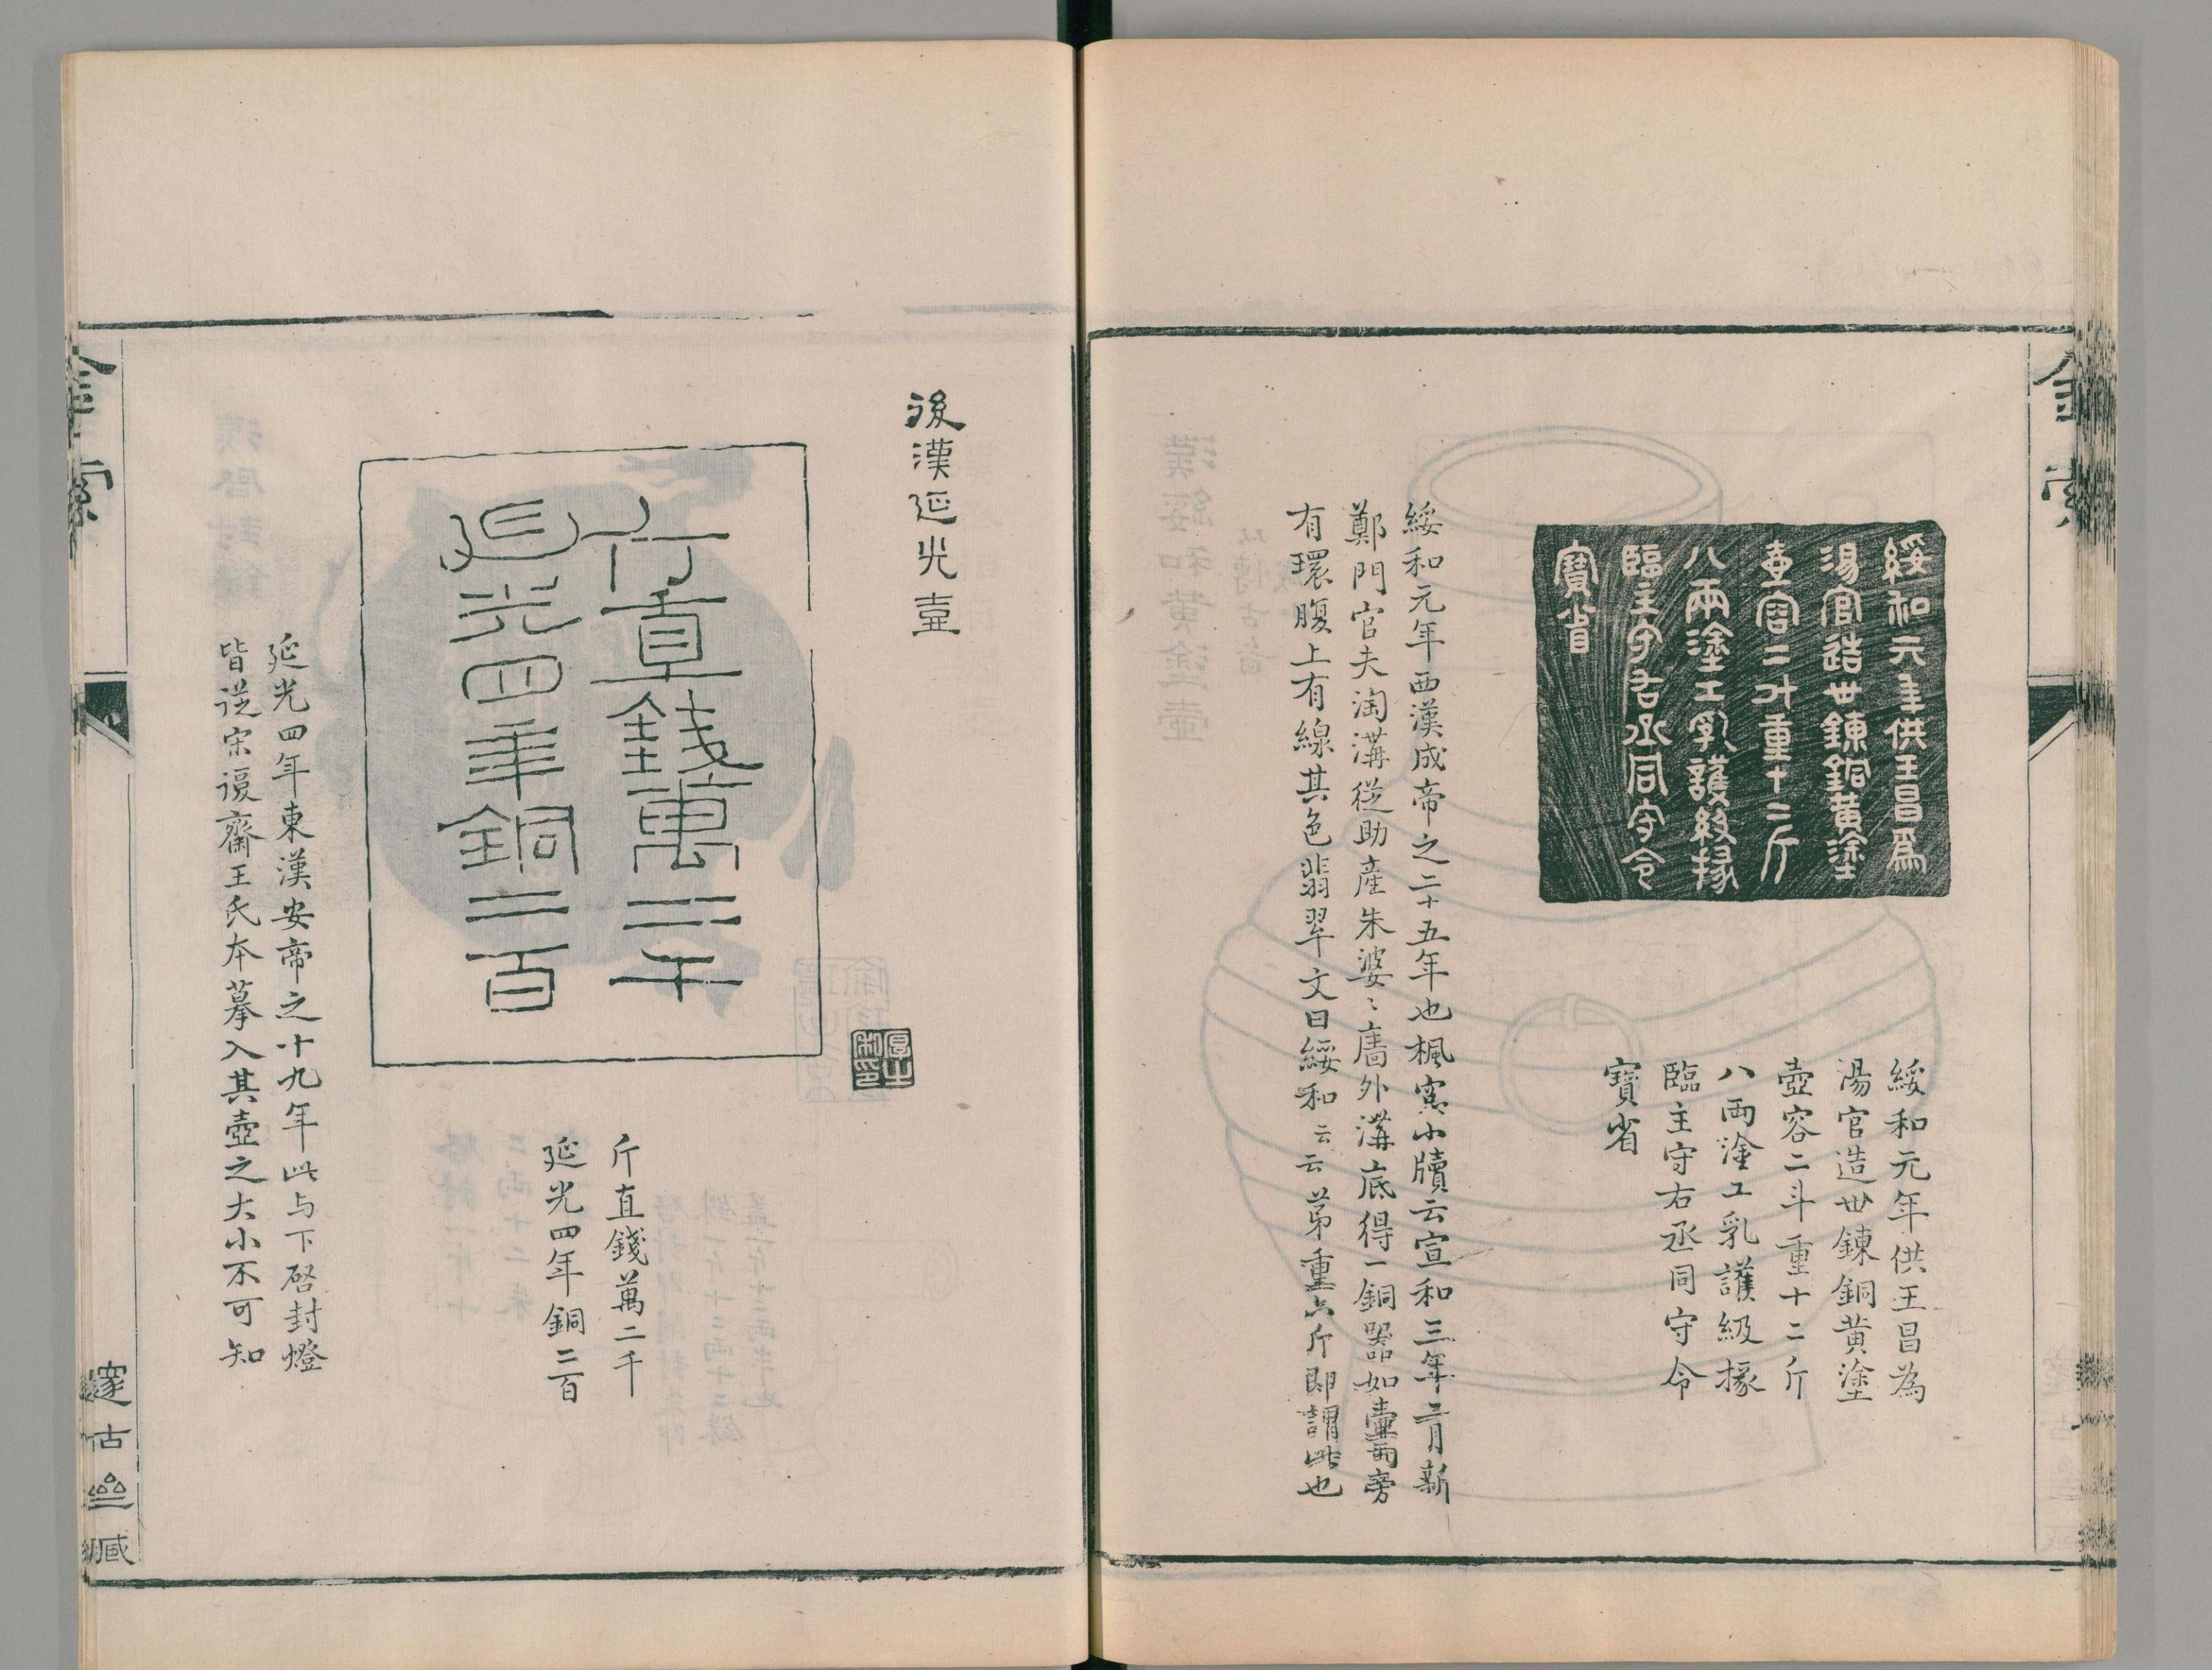 金索
綏和元年供王昌爲
湯官造卅鍊銅黃塗
壺容二斗重十二斤
八兩塗工乳護級掾
臨主守右丞同守令
寶省
綏和元年供王昌為
湯官造卅鍊銅黄塗
壺容二斗重十二斤
八兩塗工乳護級掾
臨主守右丞同守令
寶省
綏和元年西漢成帝之二十五年也楓窗小牘云宣和三年二月新
鄭門官夫淘溝從助產朱婆〻牆外溝底得一銅器如壺兩旁
有環腹上有線其色翡翠文曰綏和云云第重六斤即謂此也
後漢延光壺
斤直錢萬二千
延光四年銅二百
斤直錢萬二千
延光四年銅二百
延光四年東漢安帝之十九年此与下启封燈
皆從宋復齋王氏本摹入其壺之大小不可知
金索
邃古齋藏